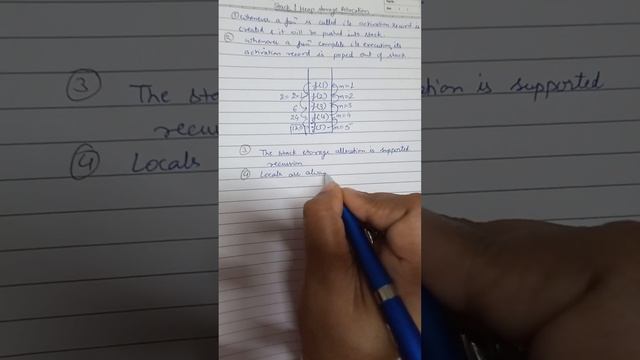 Stack & Heap storage Allocation
① whenever a funⁿ is called its activation record is
created & it will be pushed into stack.
② whenever a funⁿ complete its execution, its
activation record is poped out of stack
f(1) n=1
2=2×1 f(2) n=2
6 f(3) n=3
24 f(4) n=4
120 f(5) n=5
③ The stack storage allocation is supported
recursion
④ Locals are alway